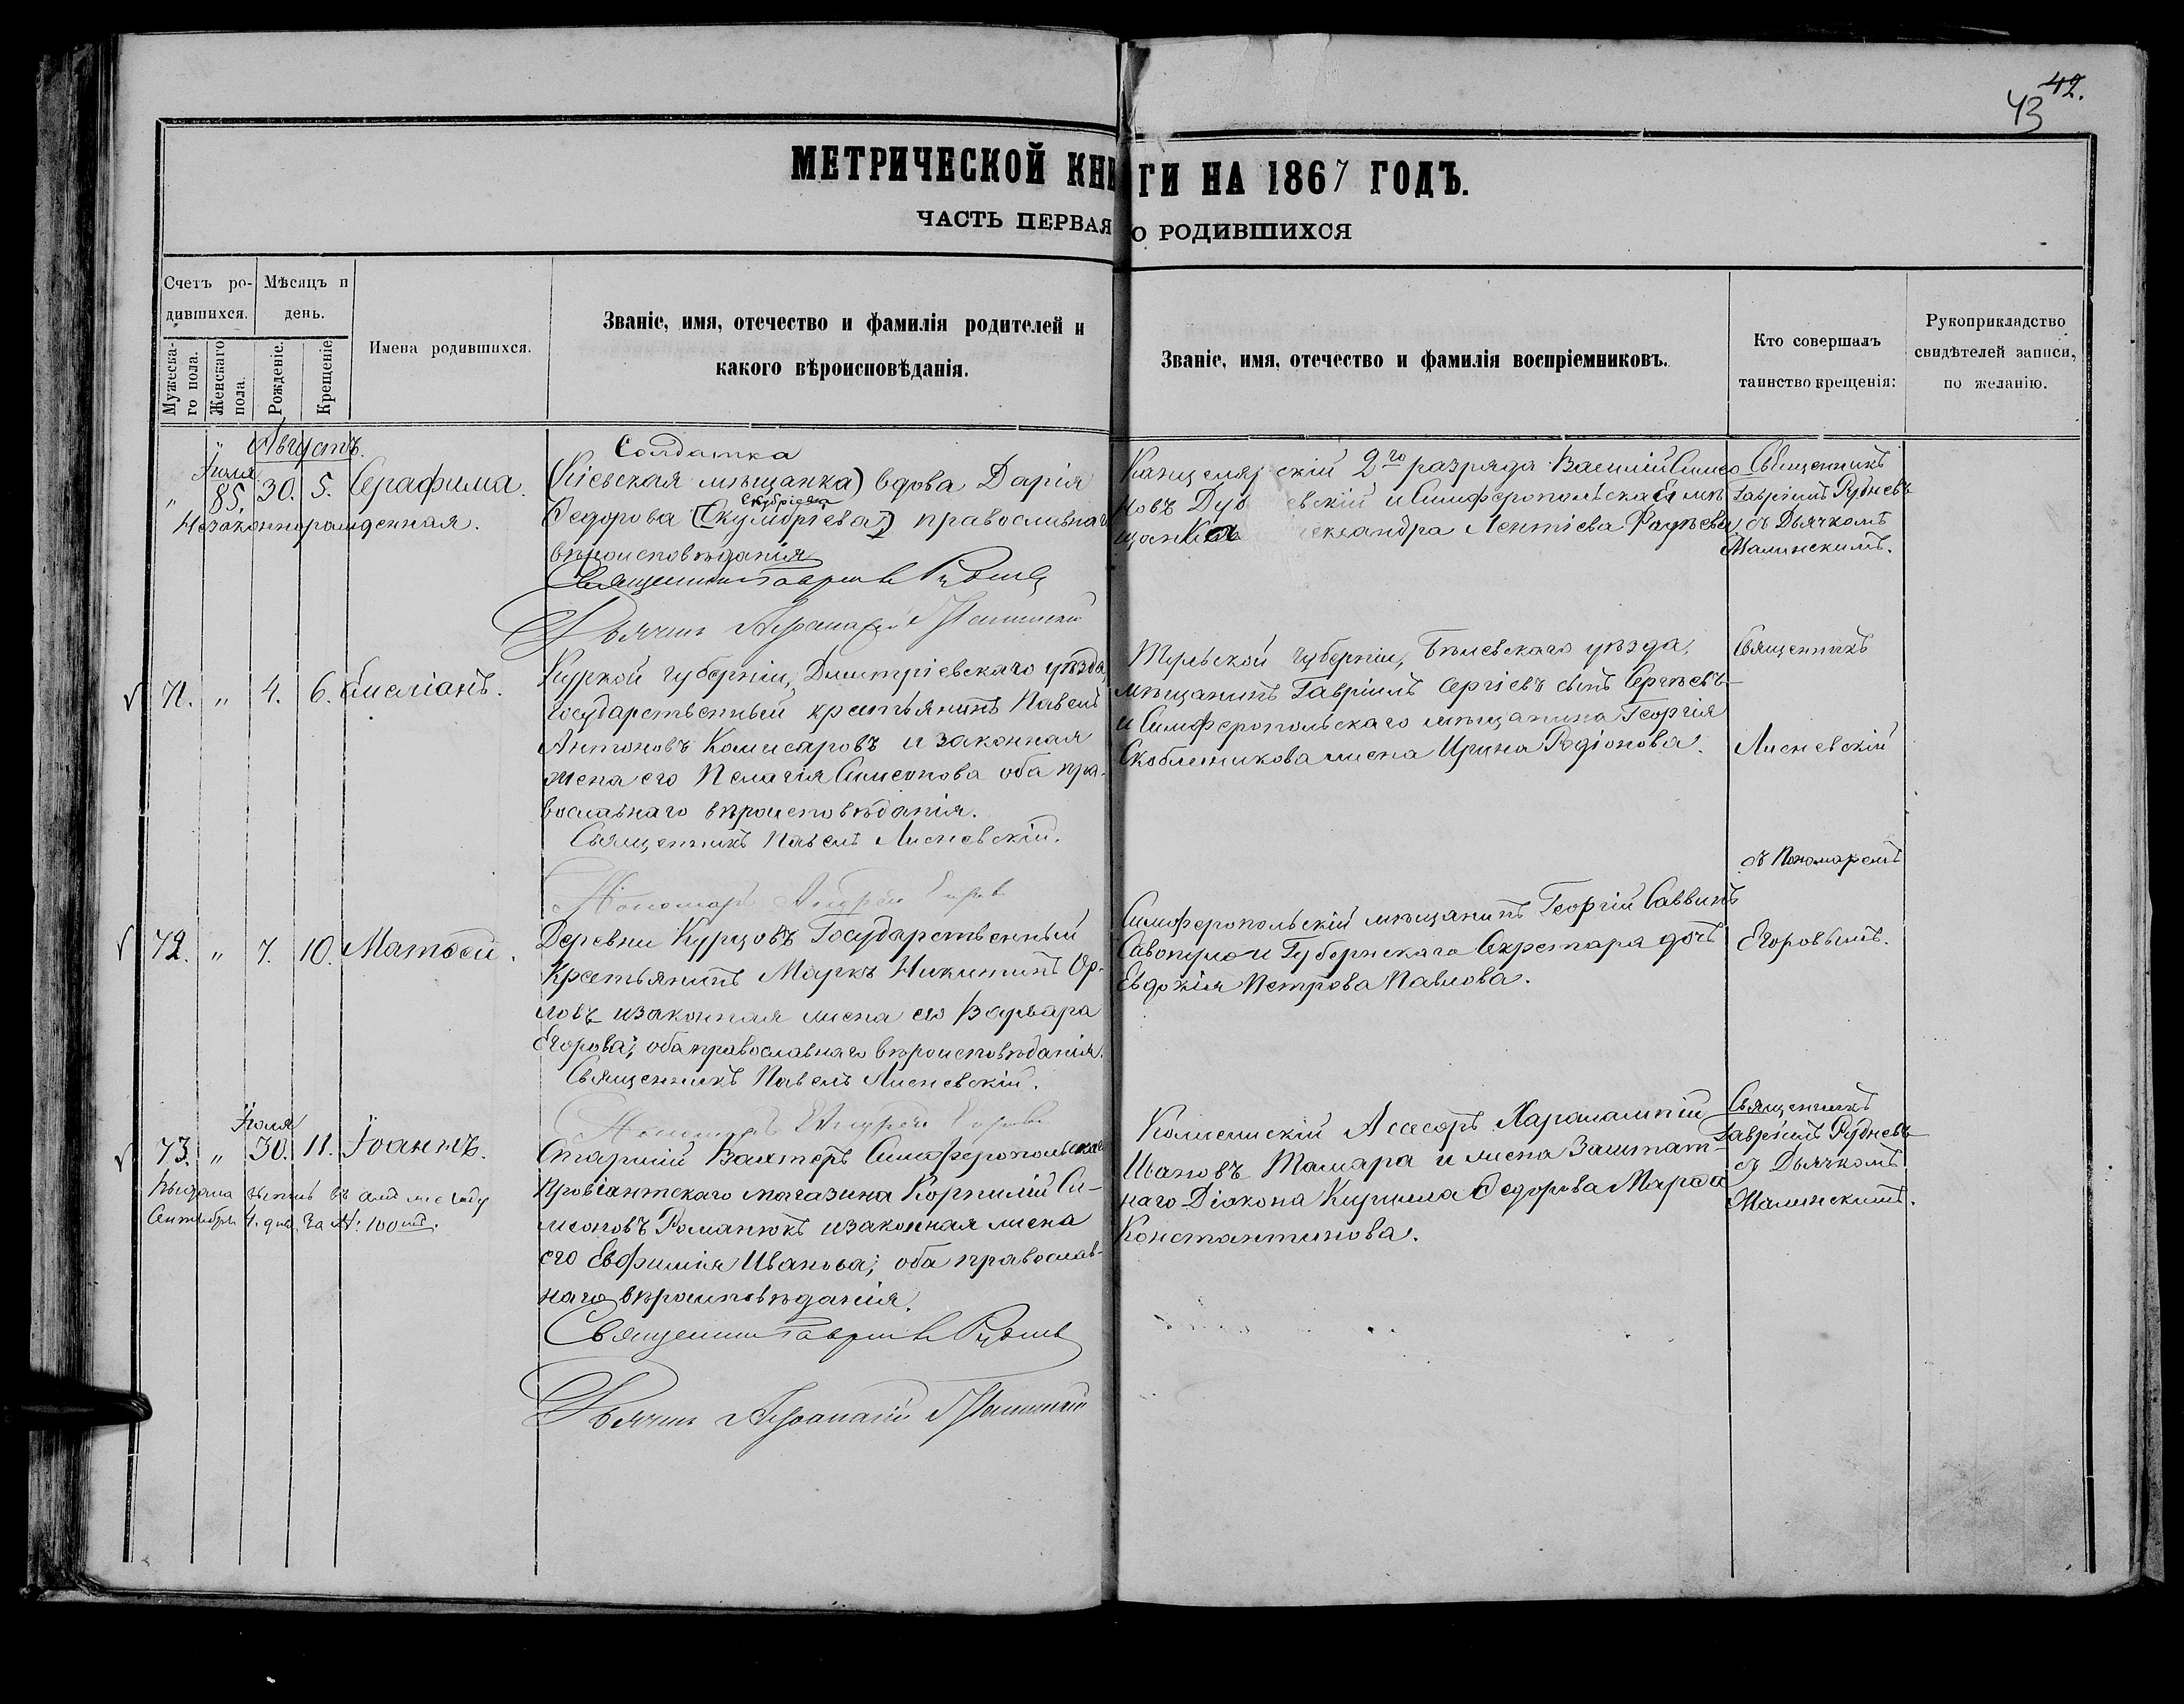 42.
43
МЕТРИЧЕСКОЙ КНИГИ НА 1867 ГОДЪ.
ЧАСТЬ ПЕРВАЯ О РОДИВШИХСЯ
Счетъ ро-
дившихся.
Мужеска-
го пола.
Женскаго
пола.
Мѣсяцъ и
день.
Рожденіе.
Крещеніе
Имена родившихся.
Званіе, имя, отечество и фамилія родителей и
какого вѣроисповѣданія.
Званіе, имя, отечество и фамилія воспріемниковъ.
Кто совершалъ
таинство крещенія:
Рукоприкладство
свидѣтелей записи,
по желанію.
Августъ.
Іюля
" 85. 30. 5. Серафима.
Незаконнорожденная.
Солдатка
(Кіевская мѣщанка) вдова Дарія
Скубріева
Ѳедорова [Скумбріева] православнаго
вѣроисповѣданія
Священникъ Гавріилъ Рудневъ
Дьячекъ Аѳанасій Малинскій
Канцелярскій 2го разряда Василій Симео
новъ Дуб евскій и Симферопольская мѣ
щанка лександра Леонтіева
Священникъ
Гавріилъ Рудневъ
съ Дьячкомъ
Малинскимъ.
71. " 4. 6. Емиліанъ.
Курской губерніи, Дмитріевскаго уѣзда,
Государственный крестьянинъ Павелъ
Антоновъ Комисаровъ и законная
жена его Пелагія Симеонова оба пра-
вославнаго вѣроисповѣданія.
Священникъ Павелъ Лисневскій.
Пономарь Андрей Егоровъ
Тульской губерніи, Бѣлевскаго уѣзда,
мѣщанинъ Гавріилъ Сергіевъ сынъ Сергѣевъ
и Симферопольскаго мѣщанина Георгія
Скобликова жена Ирина Родіонова.
Священникъ
Лисневскій
съ Пономаремъ
Егоровымъ.
72. " 7. 10. Матѳей.
Деревни Курцовъ Государственный
Крестьянинъ Маркъ Никитинъ Ор-
ловъ и законная жена его Варвара
Егорова; оба православнаго вѣроисповѣданія.
Священникъ Павелъ Лисневскій.
Пономарь Андрей Егоровъ
Симферопольскій мѣщанинъ Георгій Саввинъ
Савопуло и Губернскаго Секретаря дочь
Евдокія Петрова Павлова.
Іюля
73. " 30. 11. Іоаннъ.
Выдана выпись въ 1867 году
Сентября 4. дня. за №: 100мъ.
Старшій Вахтеръ Симферопольскаго
Провіантскаго магазина Корнилій Си-
меоновъ Романюкъ и законная жена
его Евфимія Иванова; оба православ-
наго вѣроисповѣданія.
Священникъ Гавріилъ Рудневъ
Дьячекъ Аѳанасій Малинскій
Колежскій Асесоръ Харалампій
Ивановъ Тамара и жена Заштат-
наго Діакона Кирилла Ѳедорова Марѳа
Константинова.
Священникъ
Гавріилъ Рудневъ
съ Дьячкомъ
Малинскимъ.